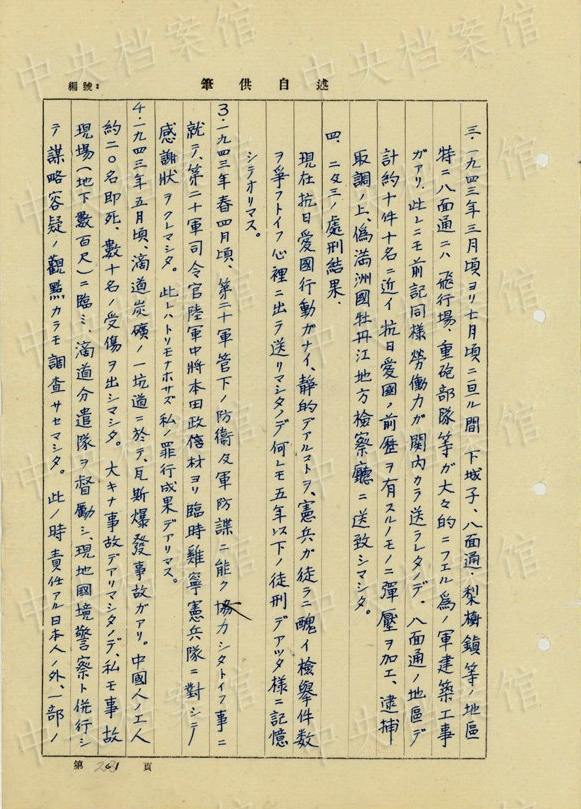 述自供筆
編號:
三、一九四三年三月頃ヨリ七月頃ニ亘ル間、下城子、八面通、梨樹鎮等ノ地區
特ニ八面通ニハ飛行場、重砲部隊等ガ大々的ニフエル爲ノ軍建築工事
ガアリ、此レニモ前記同樣勞働力ガ関内カラ送ラレタノデ、八面通ノ地區デ
計約十件十名ニ近イ抗日愛國ノ前歷ヲ有スルノモノニ彈壓ヲ加エ、逮捕
取調ノ上、偽満洲國牡丹江地方檢察廳ニ送致シマシタ。
四、二及三ノ處刑結果、
現在抗日愛國行動ガナイ、静的デアルストヲ、憲兵ガ徒ラニ醜イ檢擧件数
ヲ爭フトイフ心裡ニ出ラ送リマシタノデ何レモ五年以下ノ徒刑デアツタ様ニ記憶
シテオリマス。
3.一九四三年春四月頃、第二十軍管下ノ防衛及軍防諜ニ能ク協力シタトイフ事ニ
就テ、第二十軍司令官陸軍中將本田政偆材ヨリ臨時雞寧憲兵隊ニ對シテ
感謝狀ヲクレマシタ。此レハトリモナホサズ私ノ罪行成果デアリマス。
4.一九四三年五月頃、滴道炭礦ノ一坑道ニ於テ、瓦斯爆發事故ガアリ。中國人ノ工人
約二〇名即死、數十名ノ受傷ヲ出シマシタ。大キナ事故デアリマシタノデ、私モ事故
現場(地下數百尺)ニ臨ミ、滴道分遣隊ヲ督勵シ、現地國境警察ト併行シ
テ謀略容疑ノ觀點カラモ調査サセマシタ。此ノ時責任アル日本人ノ外、一部ノ
第261頁
中央档案馆